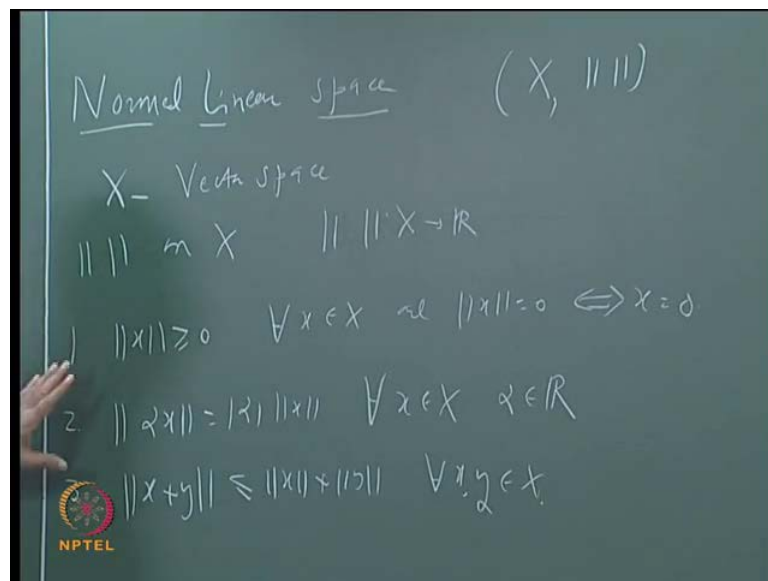 Normed Linear space (X, || ||)
X - Vector space
|| || on X || ||: X → ℝ
1) ||x|| ≥ 0 ∀ x ∈ X and ||x|| = 0 ⟺ x = 0.
2. ||αx|| = |α| ||x|| ∀ x ∈ X α ∈ ℝ
||x + y|| ≤ ||x|| + ||y|| ∀ x, y ∈ X.
NPTEL